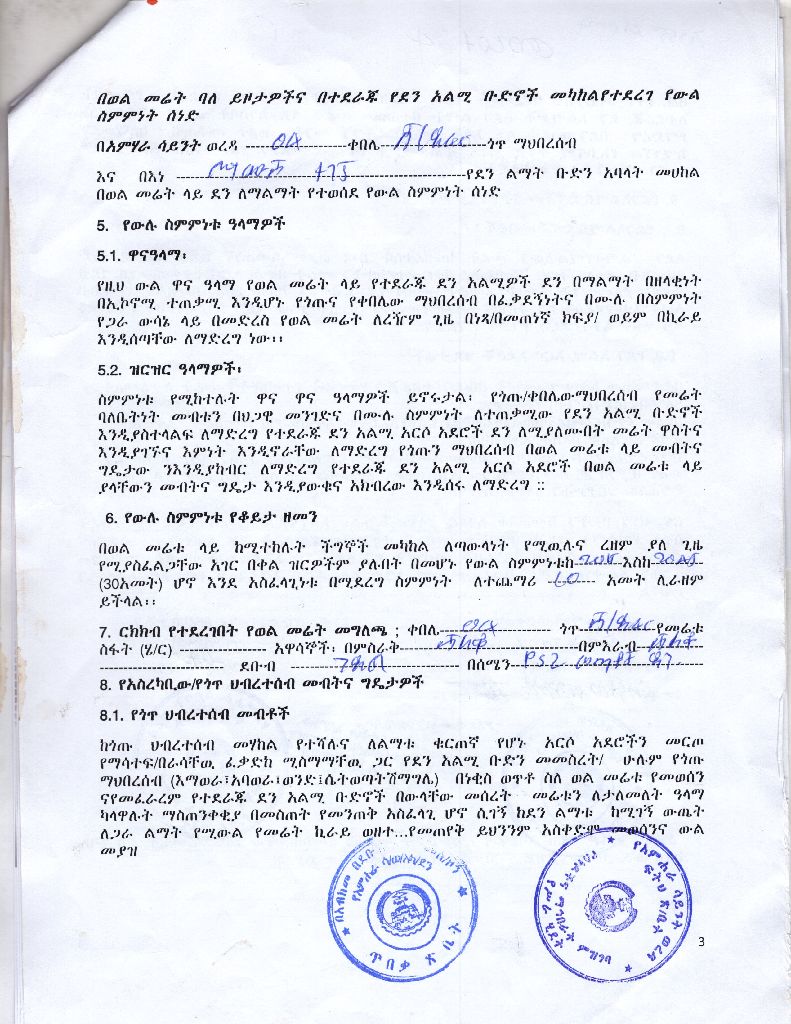 በወል መሬት ባለ ይዞታዎችና በተደራጁ የደን አልሚ ቡድኖች መካከልየተደረገ የውል
ስምምነት ሰነድ
በአምሃራ ሳይንት ወረዳ ----------------------ቀበሌ---------------ጎጥ ማህበረሰብ
እና በእነ ------------------------------------------የደን ልማት ቡድን አባላት መሀከል
በወል መሬት ላይ ደን ለማልማት የተወሰደ የውል ስምምነት ሰነድ
5. የውሉ ስምምነቱ ዓላማዎች
5.1. ዋናዓላማ፡
የዚህ ውል ዋና ዓላማ የወል መሬት ላይ የተደራጁ ደን አልሚዎች ደን በማልማት በዘላቂነት
በኢኮኖሚ ተጠቃሚ እንዲሆኑ የጎጡና የቀበሌው ማህበረሰብ በፈቃደኝነትና በሙሉ በስምምነት
የጋራ ውሳኔ ላይ በመድረስ የወል መሬት ለረዥም ጊዜ በነጻ/በመጠነኛ ክፍያ/ ወይም በኪራይ
እንዲሰጣቸው ለማድረግ ነው፡፡
5.2. ዝርዝር ዓላማዎች፡
ስምምነቱ የሚከተሉት ዋና ዋና ዓላማዎች ይኖሩታል፡ የጎጡ/ቀበሌውማህበረሰብ የመሬት
ባለቤትነት መብቱን በህጋዊ መንገድና በሙሉ ስምምነት ለተጠቃሚው የደን አልሚ ቡድኖች
እንዲያስተላልፍ ለማድረግ የተደራጁ ደን አልሚ አርሶ አደሮች ደን ለሚያለሙበት መሬት ዋስትና
እንዲያገኙና እምነት እንዲኖራቸው ለማድረግ የጎጡን ማህበረሰብ በወል መሬቱ ላይ መብትና
ግዴታው ንእንዲያከብር ለማድረግ የተደራጁ ደን አልሚ አርሶ አደሮች በወል መሬቱ ላይ
ያላቸውን መብትና ግዴታ እንዲያውቁና አክብረው እንዲሰሩ ለማድረግ ::
6. የውሉ ስምምነቱ የቆይታ ዘመን
በወል መሬቱ ላይ ከሚተከሉት ችግኞች መካከል ለጣውላነት የሚዉሉና ረዘም ያለ ጊዜ
የሚያስፈልጋቸው አገር በቀል ዝርዎችም ያሉበት በመሆኑ የውል ስምምነቱከ እስከ
(30አመት) ሆኖ እንደ አስፈላጊነቱ በሚደረግ ስምምነት ለተጨማሪ አመት ሊራዘም
ይችላል፡፡
7. ርክክብ የተደረገበት የወል መሬት መግለጫ ; ቀበሌ-------------------- ጎጥ-------------የመሬቱ
ስፋት (ሄ/ር) ---------------- አዋሳኞች፡ በምስራቅ-----------------------------በምእራብ
------------------------ ደቡብ ------------------------ በሰሜን PSZ
8. የአስረካቢው/የጎጥ ህብረተሰብ መብትና ግዴታዎች
8.1. የጎጥ ህብረተሰብ መብቶች
ከጎጡ ህብረተሰብ መሃከል የተሻሉና ለልማቱ ቁርጠኛ የሆኑ አርሶ አደሮችን መርጦ
የማሳተፍ/በራሳቸዉ ፈቃድከ ሚስማማቸዉ ጋር የደን አልሚ ቡድን መመስረት/ ሁሉም የጎጡ
ማህበረሰብ (እማወራ፣አባወራ፣ወንድ፤ሴትወጣትሽማግሌ) በነቂስ ወጥቶ ስለ ወል መሬቱ የመወሰን
ናየመፈራረም የተደራጁ ደን አልሚ ቡድኖች በውላቸው መሰረት መሬቱን ለታለመለት ዓላማ
ካላዋሉት ማስጠንቀቂያ በመስጠት የመንጠቅ አስፈላጊ ሆኖ ሲገኝ ከደን ልማቱ ከሚገኝ ውጤት
ለጋራ ልማት የሚውል የመሬት ኪራይ ወዘተ...የመጠየቅ ይህንንም አስቀድሞ መወሰንና ውል
መያዝ
ጥበቃ ጽ ቤት
3